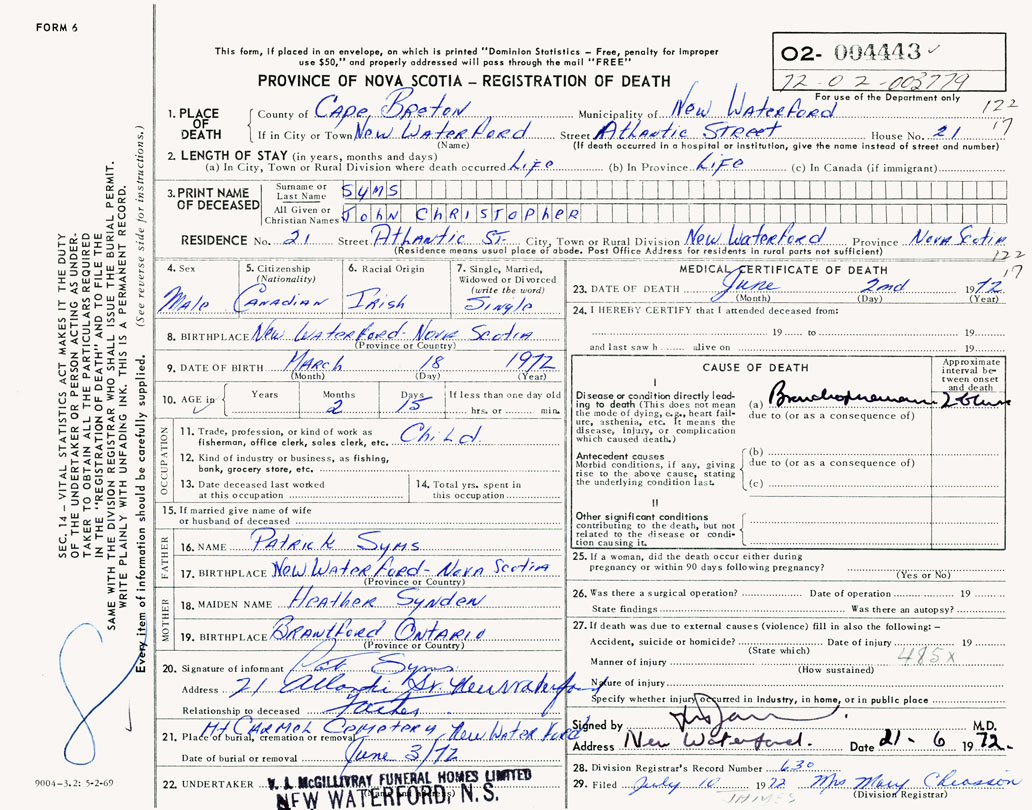 FORM 6
This form, if placed in an envelope, on which is printed "Dominion Statistics – Free, penalty for improper
use $50," and properly addressed will pass through the mail "FREE"
PROVINCE OF NOVA SCOTIA – REGISTRATION OF DEATH
O2- 004443
72-02-003779
For use of the Department only
122
17
1. PLACE OF DEATH
County of Cape Breton Municipality of New Waterford
If in City or Town New Waterford Street Atlantic Street House No. 21
(Name) (If death occurred in a hospital or institution, give the name instead of street and number)
2. LENGTH OF STAY (in years, months and days)
(a) In City, Town or Rural Division where death occurred Life (b) In Province Life (c) In Canada (if immigrant)
3. PRINT NAME OF DECEASED
Surname or Last Name SYMS
All Given or Christian Names John Christopher
RESIDENCE No. 21 Street Atlantic St. City, Town or Rural Division New Waterford Province Nova Scotia
(Residence means usual place of abode. Post Office Address for residents in rural parts not sufficient)
122
17
4. Sex
Male
5. Citizenship
(Nationality)
Canadian
6. Racial Origin
Irish
7. Single, Married,
Widowed or Divorced
(write the word)
Single
8. BIRTHPLACE New Waterford Nova Scotia
(Province or Country)
9. DATE OF BIRTH March 18 1972
(Month) (Day) (Year)
10. AGE in
Years
Months
2
Days
15
If less than one day old
hrs. or min.
OCCUPATION
11. Trade, profession, or kind of work as
fisherman, office clerk, sales clerk, etc. Child
12. Kind of industry or business, as fishing,
bank, grocery store, etc.
13. Date deceased last worked
at this occupation
14. Total yrs. spent in
this occupation
15. If married give name of wife
or husband of deceased
FATHER
16. NAME Patrick Syms
17. BIRTHPLACE New Waterford - Nova Scotia
(Province or Country)
MOTHER
18. MAIDEN NAME Heather Synden
19. BIRTHPLACE Brantford Ontario
(Province or Country)
20. Signature of informant Pat Syms
Address 21 Atlantic St. New Waterford
Relationship to deceased Father
21. Place of burial, cremation or removal Mt Carmel Cemetery New Waterford
Date of burial or removal June 3/72
22. UNDERTAKER
V. J. McGILLIVRAY FUNERAL HOMES LIMITED
NEW WATERFORD, N.S.
MEDICAL CERTIFICATE OF DEATH
23. DATE OF DEATH June 2nd 1972
(Month) (Day) (Year)
24. I HEREBY CERTIFY that I attended deceased from:
19 to 19
and last saw h alive on 19
CAUSE OF DEATH
Approximate
interval be-
tween onset
and death
I
Disease or condition directly lead-
ing to death (This does not mean
the mode of dying, e.g., heart fail-
ure, asthenia, etc. It means the
disease, injury, or complication
which caused death.)
(a)
due to (or as a consequence of)
Antecedent causes
Morbid conditions, if any, giving
rise to the above cause, stating
the underlying condition last.
(b)
due to (or as a consequence of)
(c)
II
Other significant conditions
contributing to the death, but not
related to the disease or condi-
tion causing it.
25. If a woman, did the death occur either during
pregnancy or within 90 days following pregnancy?
(Yes or No)
26. Was there a surgical operation? Date of operation 19
State findings Was there an autopsy?
27. If death was due to external causes (violence) fill in also the following:–
Accident, suicide or homicide? Date of injury 19
(State which)
485x
Manner of injury
(How sustained)
Nature of injury
Specify whether injury occurred in industry, in home, or in public place
Signed by M.D.
Address New Waterford. Date 21-6 1972.
28. Division Registrar's Record Number 630
29. Filed July 10 1972 Mrs Mary Chiasson
(Division Registrar)
SEC. 14 – VITAL STATISTICS ACT MAKES IT THE DUTY
OF THE UNDERTAKER OR PERSON ACTING AS UNDER-
TAKER TO OBTAIN ALL THE PARTICULARS REQUIRED
IN THE "REGISTRATION OF DEATH" AND TO FILE THE
SAME WITH THE DIVISION REGISTRAR WHO SHALL ISSUE THE BURIAL PERMIT.
WRITE PLAINLY WITH UNFADING INK. THIS IS A PERMANENT RECORD.
Every item of information should be carefully supplied. (See reverse side for instructions.)
9004-3.2: 5-2-69